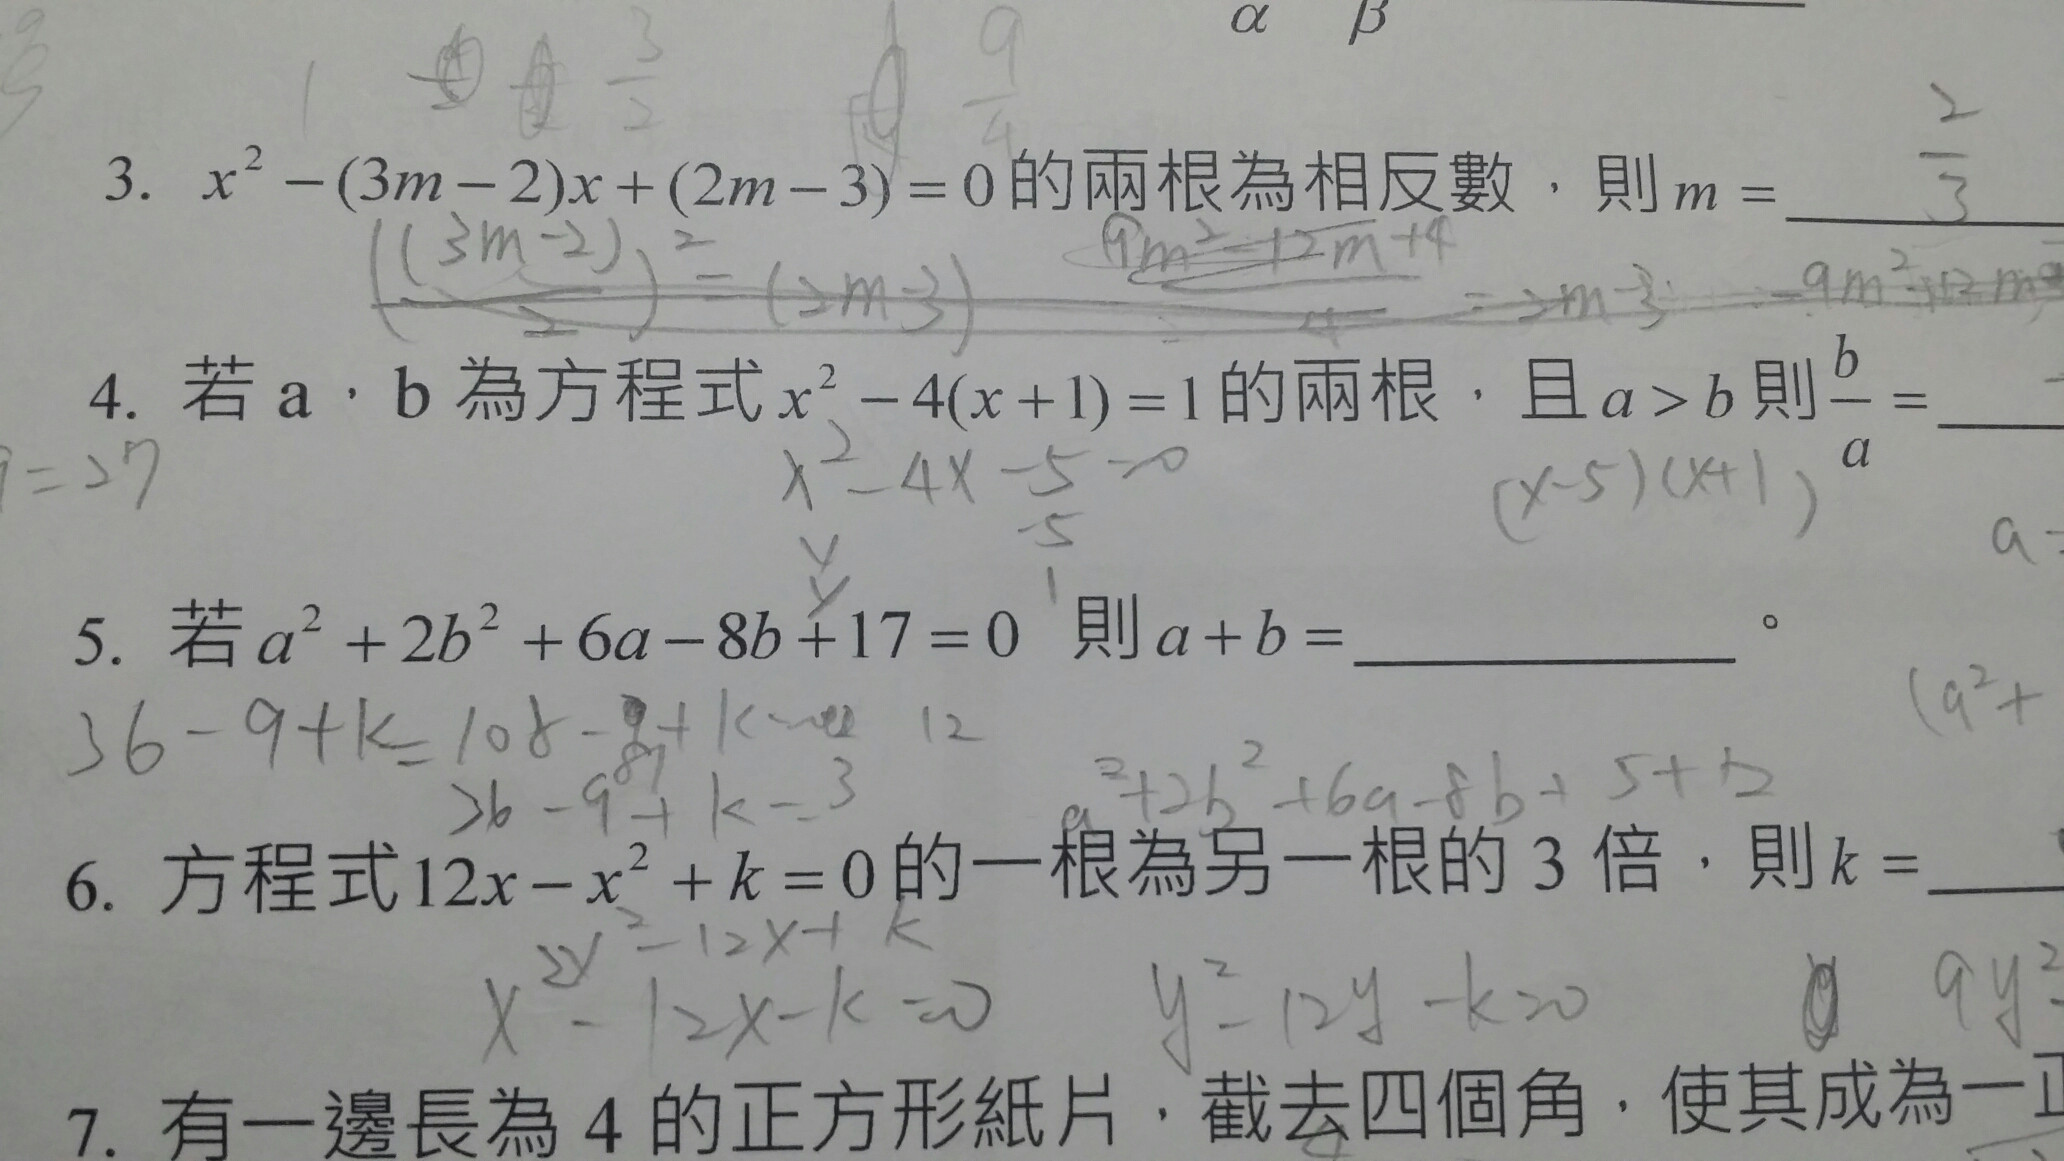 α β
1 3/2 9/4
3. x² − (3m − 2)x + (2m − 3) = 0 的兩根為相反數，則 m = 2/3
((3m-2)/2)² = (2m-3) (9m²-12m+4)/4 = 2m-3 -9m²+12m
4. 若 a，b 為方程式 x² − 4(x + 1) = 1 的兩根，且 a > b 則 b/a =
=27 x²-4x-5=0 (x-5)(x+1)
-5
1 a=
5. 若 a² + 2b² + 6a − 8b + 17 = 0 則 a + b = 。
36-9+k=108- +k 12 (a²+
36-9+k=3 a²+2b²+6a-8b+5+12
6. 方程式 12x − x² + k = 0 的一根為另一根的 3 倍，則 k =
x²-12x+k
x²-12x-k=0 y²-12y-k=0 9y²-
7. 有一邊長為 4 的正方形紙片，截去四個角，使其成為一正